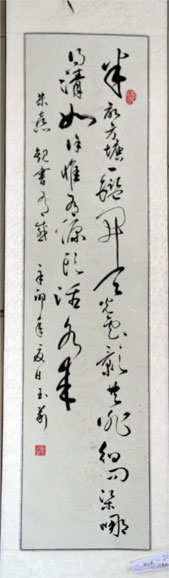 半亩方塘一鑑开天光云影共徘徊问渠哪
得清如许惟有源头活水来
朱熹 观书有感
辛卯年夏日玉